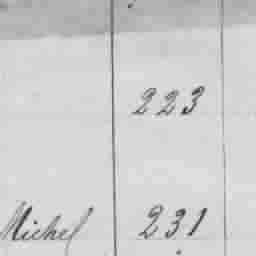 223
Michel 231